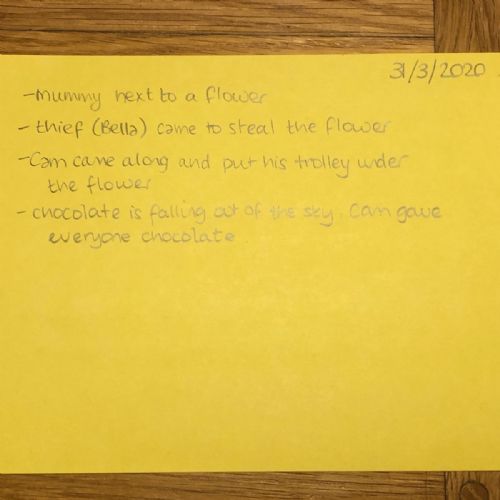 31/3/2020
- Mummy next to a flower
- thief (Bella) came to steal the flower
- Cam came along and put his trolley under
the flower
- chocolate is falling out of the sky. Cam gave
everyone chocolate